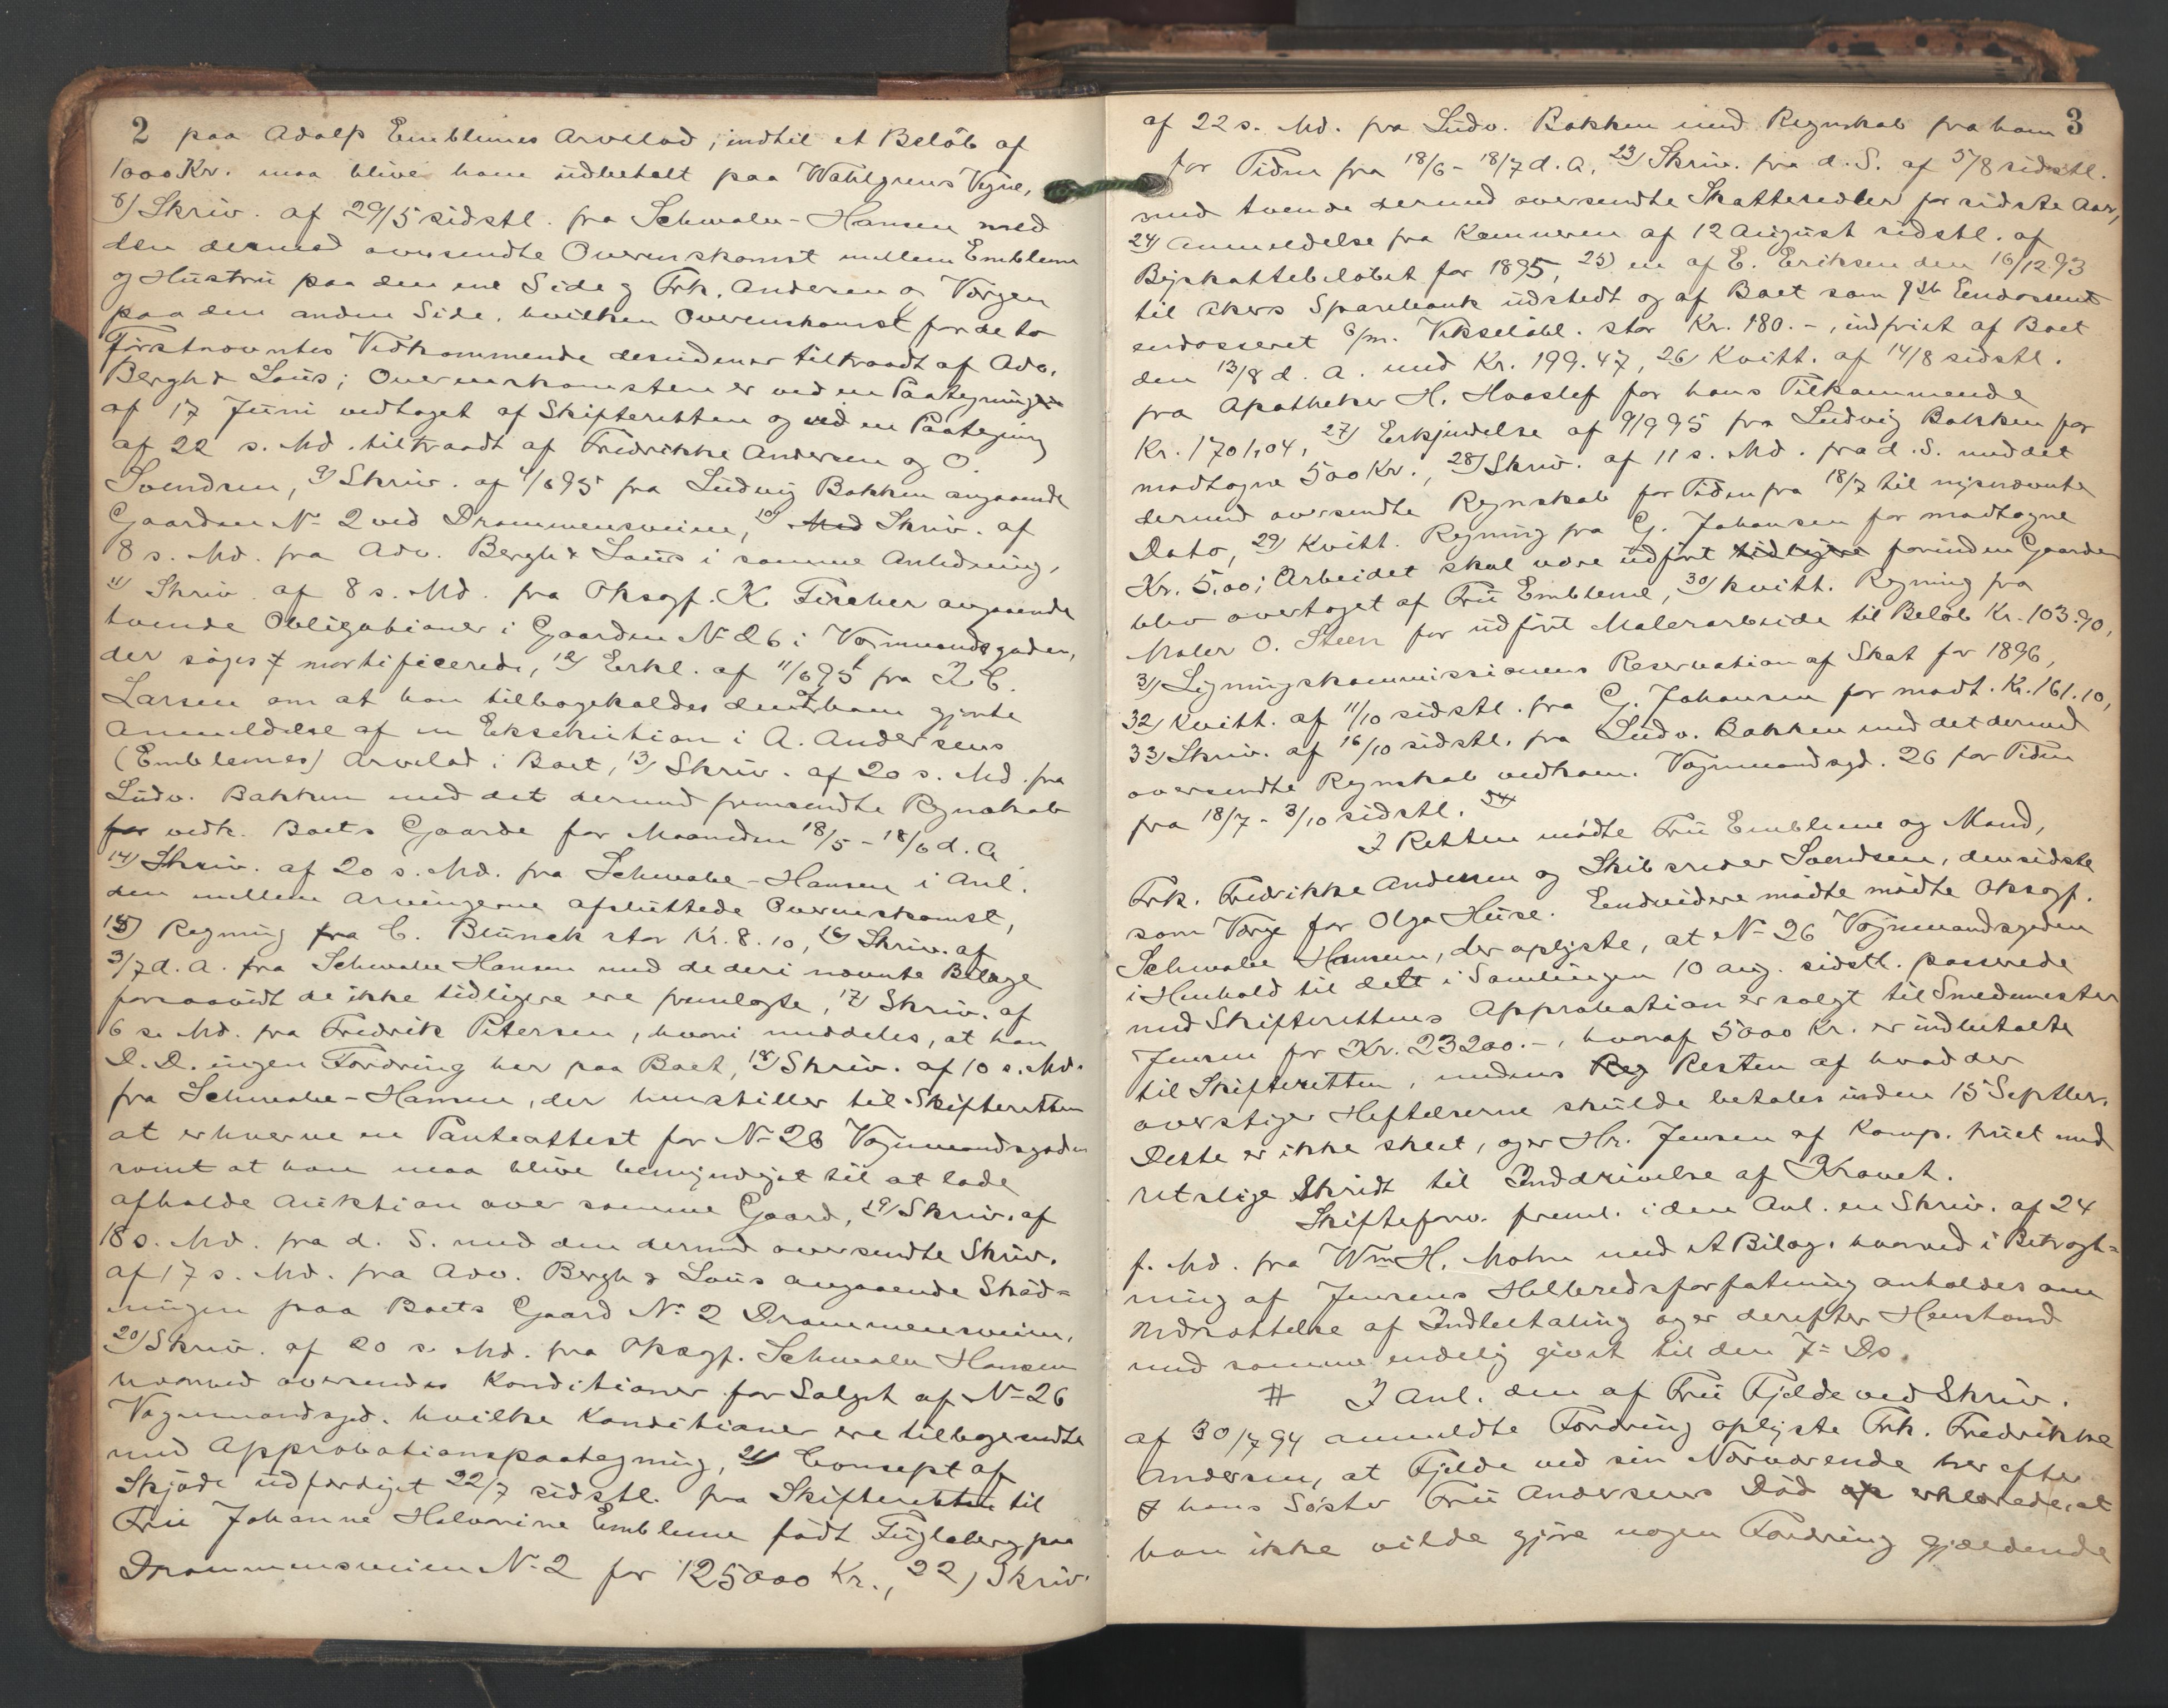 2
paa Adolf Emblemes Arvelod, indtil et Beløb af
1000 Kr. maa blive ham udbetalt paa Wahlgrens Vegne,
8) Skriv. af 29/5 sidstl. fra Schwabe-Hansen med
den dermed oversendte Overenskomst mellem Embleme
og Hustru paa den ene Side og Frk. Andersen og Værgen
paa den anden Side, hvilken Overenskomst for de to
Førstnævntes Vedkommende desuden er tiltraadt af Adv.
Bergh & Lous; Overenskomsten er ved en Paategning
af 17 Juni vedtaget af Skifteretten og ved en Paategning
af 22 s. Md. tiltraadt af Fredrikke Andersen og O.
Svendsen, 9) Skriv. af 4/6 95 fra Ludvig Bakken angaaende
Gaarden No 2 ved Drammensveien, 10) Med Skriv. af
8 s. Md. fra Adv. Bergh & Lous i samme Anledning,
11) Skriv. af 8 s. Md. fra Oksagf. K. Fischer angaaende
tvende Obligationer i Gaarden No 26 i Vognmandsgaden,
der søges mortificerede, 12) Erkl. af 11/6 95 fra
Larsen om at han tilbagekalder den af ham gjorte
Anmeldelse af en Eksekution i A. Andersens
(Emblemes) Arvelod i Boet, 13) Skriv. af 20 s. Md. fra
Ludv. Bakken med det dermed fremsendte Regnskab
for vedk. Boets Gaarde for Maaneden 18/5 - 18/6 d. A
14) Skriv. af 20 s. Md. fra Schwabe-Hansen i Anl.
den mellem Arvingerne afsluttede Overenskomst,
15) Regning fra C. Blunck stor Kr. 8.10, 16) Skriv. af
3/7 d. A. fra Schwabe Hansen med de deri nævnte Bilage
forsaavidt de ikke tidligere ere fremlagte, 17) Skriv. af
6 s. Md. fra Fredrik Petersen, hvori meddeles, at han
D. D. ingen Fordring har paa Boet, 18) Skriv. af 10 s. Md.
fra Schwabe-Hansen, der henstiller til Skifteretten
at erhverve en Panteattest for No 26 Vognmandsgaden
samt at han maa blive bemyndiget til at lade
afholde Auktion over samme Gaard, 19) Skriv. af
18 s. Md. fra d. S. med den dermed oversendte Skriv.
af 17 s. Md. fra Adv. Bergh & Lous angaaende Skød=
ningen paa Boets Gaard No 2 Drammensveien,
20) Skriv. af 20 s. Md. fra Oksagf. Schwabe Hansen
hvorved oversendes Konditioner for Salget af No 26
Vognmandsgd. hvilke Konditioner ere tilbagesendte
med Approbationspaategning, 21) Concept af
Skjøde udfærdiget 22/7 sidstl. fra Skifteretten til
Fru Johanne Halvorine Embleme født Fugleberg paa
Drammensveien No 2 for 125000 Kr., 22) Skriv.
3
af 22 s. Md. fra Ludv. Bakken med Regnskab fra ham
for Tiden fra 18/6 - 18/7 d. A. 23) Skriv. fra d. S. af 5/8 sidstl.
med tvende dermed oversendte Skattesedler for sidste Aar,
24) Anmeldelse fra Kemneren af 12 August sidstl. af
Byskattebeløbet for 1895, 25) en af E. Eriksen den 16/12 93
til Akers Sparebank udstedt og af Boet som Endossent
endosseret Vekselobl. stor Kr. 180.-, indfriet af Boet
den 13/8 d. A. med Kr. 199.47, 26) Kvitt. af 14/8 sidstl.
fra Apotheker H. Haaslef for hans Tilkommende
Kr. 1701,04, 27) Erkjendelse af 9/9 95 fra Ludvig Bakken for
modtagne 500 Kr., 28) Skriv. af 11 s. Md. fra d. S. med det
dermed oversendte Regnskab for Tiden fra 18/7 til nysnævnte
Dato, 29) Kvitt. Regning fra G. Johansen for modtagne
Kr. 5,00; Arbeidet skal være udført tidligere forinden Gaarden
blev overtaget af Fru Embleme, 30) kvitt. Regning fra
Maler O. Steen for udført Malerarbeide til Beløb Kr. 103.90,
31) Ligningskommissionens Reservation af Skat for 1896,
32) Kvitt. af 11/10 sidstl. fra G. Johansen for modt. Kr. 161.10,
33) Skriv. af 16/10 sidstl. fra Ludv. Bakken med det dermed
oversendte Regnskab vedkom. Vognmandsgd. 26 for Tiden
fra 18/7 - 3/10 sidstl. 34
I Retten mødte Fru Embleme og Mand,
Frk. Fredrikke Andersen og Skibsreder Svendsen, den sidste
som Værge for Olga Huse. Endvidere mødte mødte Oksagf.
Schwabe Hansen, der oplyste, at No 26 Vognmandsgaden
i Henhold til dett i Samlingen 10 Aug. sidstl. passerede
med Skifterettens Approbation er solgt til Smedemester
Jensen for Kr. 23200.-, hvoraf 5000 Kr. er indbetalte
til Skifteretten, medens Reg Resten af hvad der
overstiger Heftelserne skulde betales inden 15 Septbr.
Dette er ikke skeet, og er Hr. Jensen af Komp. truet med
retslige Skridt til Inddrivelse af Kravet.
Skifteforv. freml. i den Anl. en Skriv. af 24
f. Md. fra Wm H. Mohn med et Bilag, hvorved i Betragt=
ning af Jensens Helbredsforfatning anholdes om
Udsættelse af Indbetaling og er derefter Henstand
med samme endelig givet til den 7= Ds.
# I Anl. den af Fru Fjelde ved Skriv.
af 30/7 94 anmeldte Fordring oplyste Frk. Fredrikke
Andersen, at Fjelde ved sin Nærværende her efter
hans Søster Fru Andersens Død op erklærede, at
han ikke vilde gjøre nogen Fordring gjældende